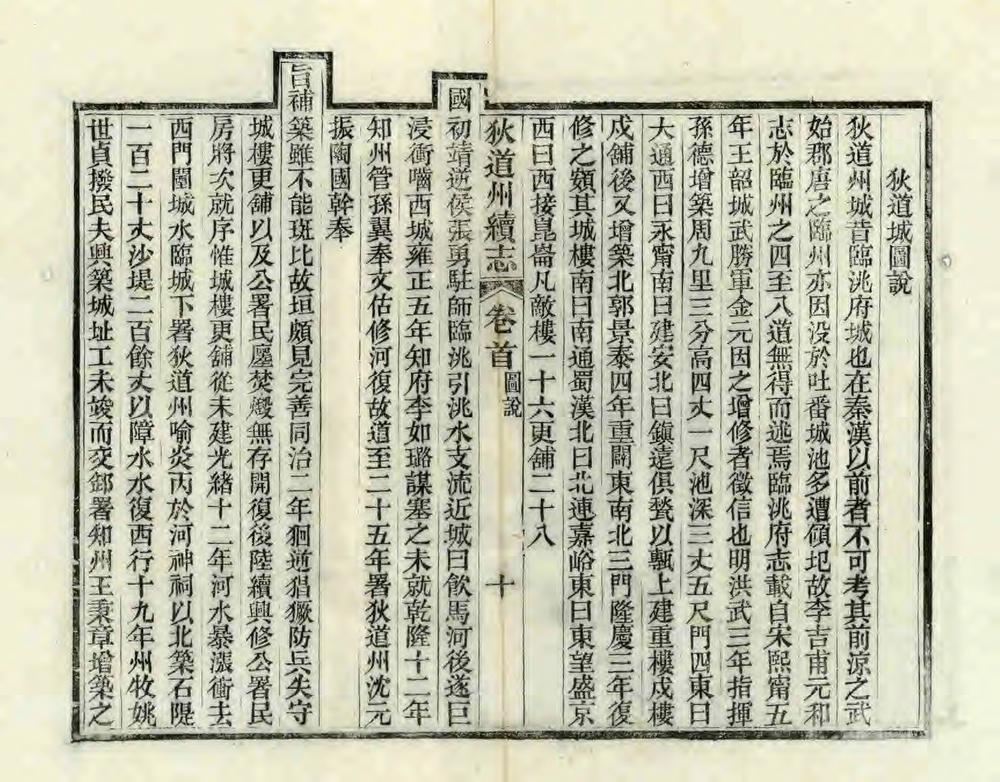 狄道城圖說
狄道州城昔臨洮府城也在秦漢以前者不可考其前涼之武
始郡唐之臨州亦因没於吐番城池多遭傾圯故李吉甫元和
志於臨州之四至八道無得而述焉臨洮府志載自宋熙甯五
年王韶城武勝軍金元因之增修者徵信也明洪武三年指揮
孫德增築周九里三分高四丈一尺池深三丈五尺門四東曰
大通西曰永甯南曰建安北曰鎮遠俱甃以甎上建重樓戍樓
戍舖後又增築北郭景泰四年重闢東南北三門隆慶三年復
修之額其城樓南曰南通蜀漢北曰北連嘉峪東曰東望盛京
西曰西接崑崙凡敵樓一十六更舖二十八
狄道州續志 卷首 圖說 十
國初靖逆侯張勇駐師臨洮引洮水支流近城曰飲馬河後遂巨
浸衝嚙西城雍正五年知府李如璐謀塞之未就乾隆十二年
知州管孫翼奉文估修河復故道至二十五年署狄道州沈元
振陶國幹奉
旨補築雖不能斑比故垣頗見完善同治二年狪逆猖獗防兵失守
城樓更舖以及公署民廛焚燬無存開復後陸續興修公署民
房將次就序惟城樓更舖從未建光緒十二年河水暴漲衝去
西門圍城水臨城下署狄道州喻炎丙於河神祠以北築石隄
一百二十丈沙堤二百餘丈以障水水復西行十九年州牧姚
世貞撥民夫興築城址工未竣而交卸署知州王秉章增築之